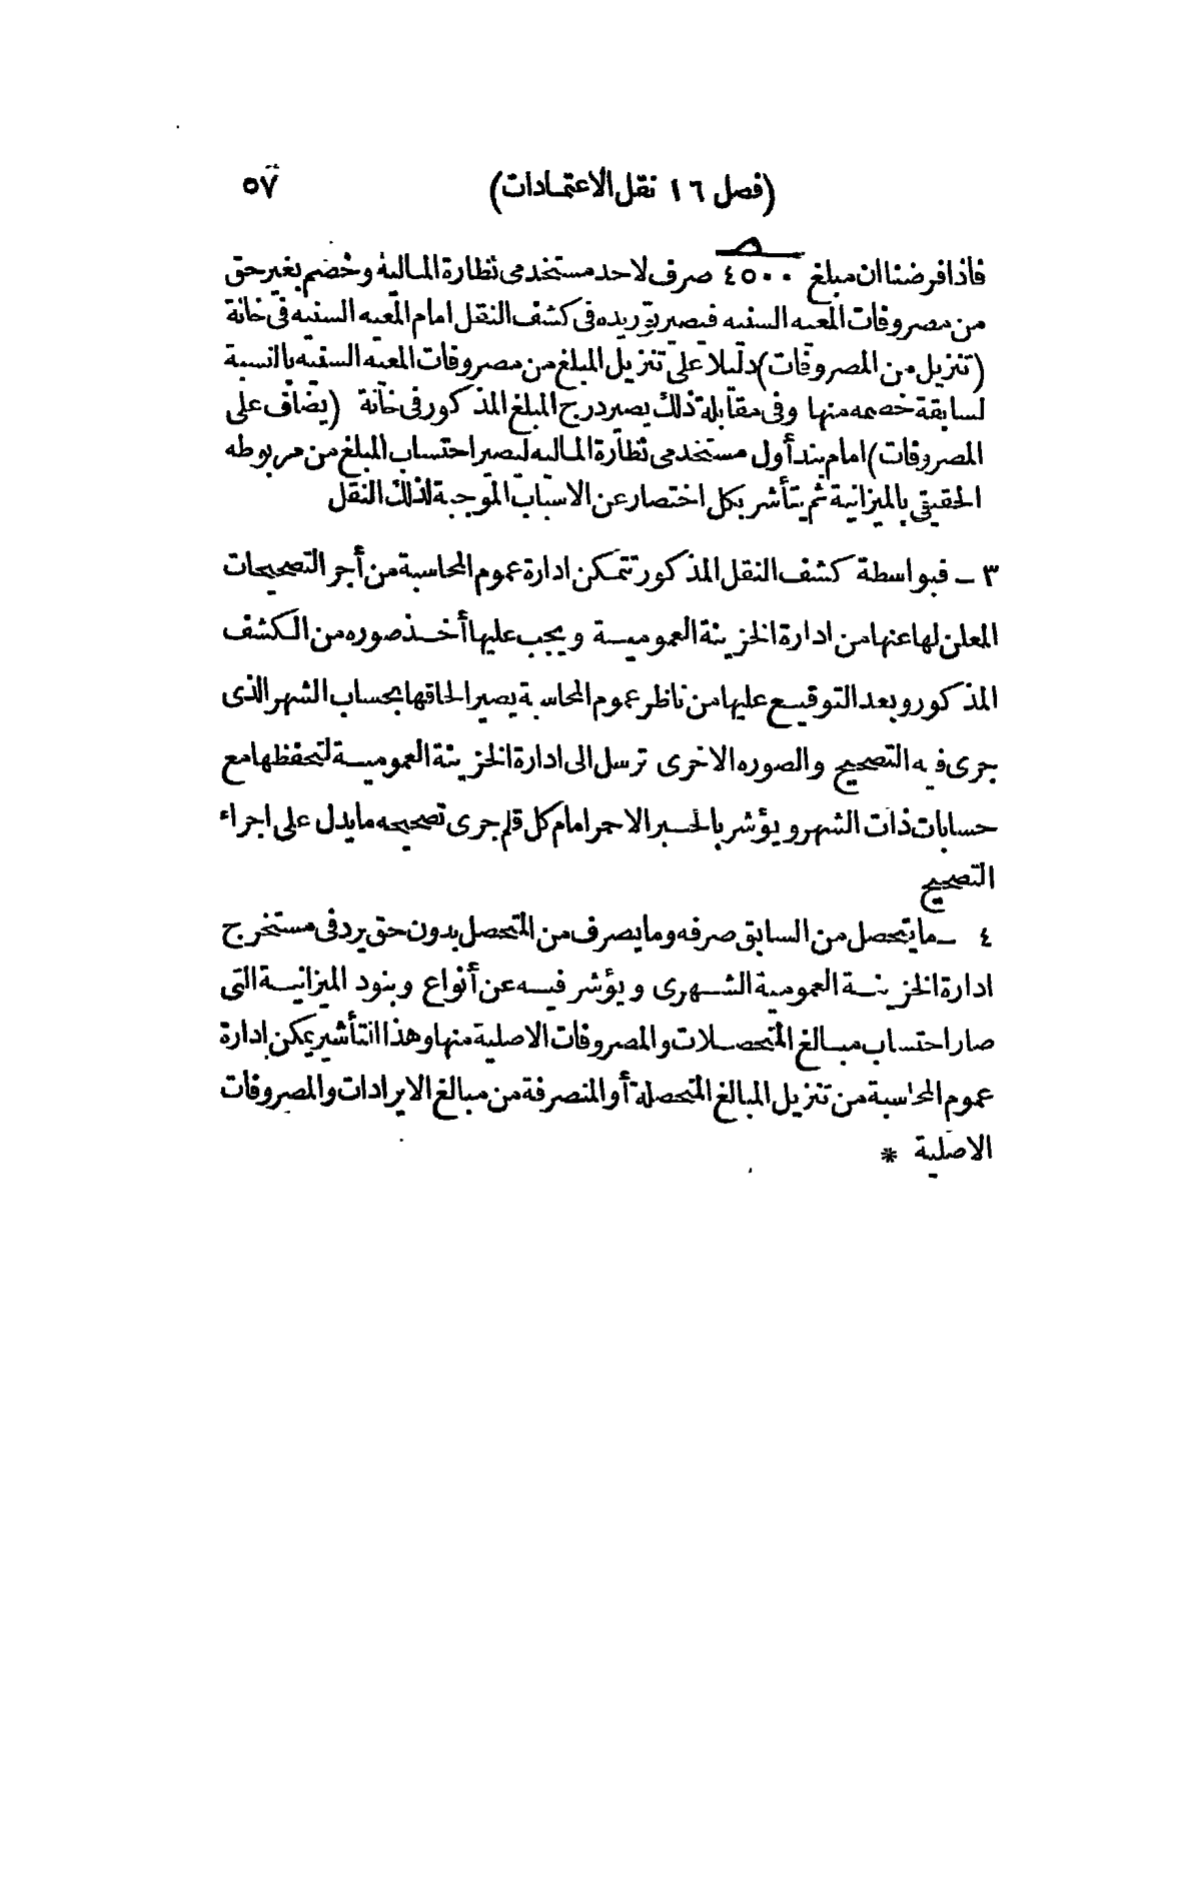 (فصل ١٦ نقل الاعتمادات) ٥٧
فاذا فرضنا ان مبلغ ٤٥٠٠ صرف لاحد مستخدمى نظارة المالية وخصم بغير حق
من مصروفات المعيه السنيه فيصير توريده فى كشف النقل امام المعيه السنيه فى خانة
(تنزيل من المصروفات) دليلا على تنزيل المبلغ من مصروفات المعيه السنيه بالنسبة
لسابقة خصمه منها وفى مقابلة ذلك يصير درج المبلغ المذكور فى خانة (يضاف على
المصروفات) امام بند أول مستخدمى نظارة الماليه ليصير احتساب المبلغ من مربوطه
الحقيقى بالميزانية ثم يتأشر بكل اختصار عن الاسباب الموجبة لذلك النقل
٣ – فبواسطة كشف النقل المذكور تتمكن ادارة عموم المحاسبة من أجر التصحيحات
المعلن لها عنها من ادارة الخزينة العمومية ويجب عليها أخذ صوره من الكشف
المذكور وبعد التوقيع عليها من ناظر عموم المحاسبة يصير الحاقها بحساب الشهر الذى
جرى فيه التصحيح والصوره الاخرى ترسل الى ادارة الخزينة العمومية لتحفظها مع
حسابات ذات الشهر ويؤشر بالحبر الاحمر امام كل قلم جرى تصحيحه ما يدل على اجراء
التصحيح
٤ – ما يتحصل من السابق صرفه وما يصرف من المتحصل بدون حق يرد فى مستخرج
ادارة الخزينة العمومية الشهرى ويؤشر فيه عن أنواع وبنود الميزانية التى
صار احتساب مبالغ المتحصلات والمصروفات الاصلية منها وهذا التأشير يمكن ادارة
عموم المحاسبة من تنزيل المبالغ المتحصلة أو المنصرفة من مبالغ الايرادات والمصروفات
الاصلية *